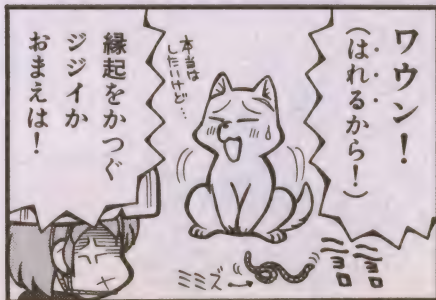 ワウン！
(はれるから！)
本当は
したいけど…
縁起をかつぐ
ジジイか
おまえは！
ニョロ
ニョロ
ミミズ→